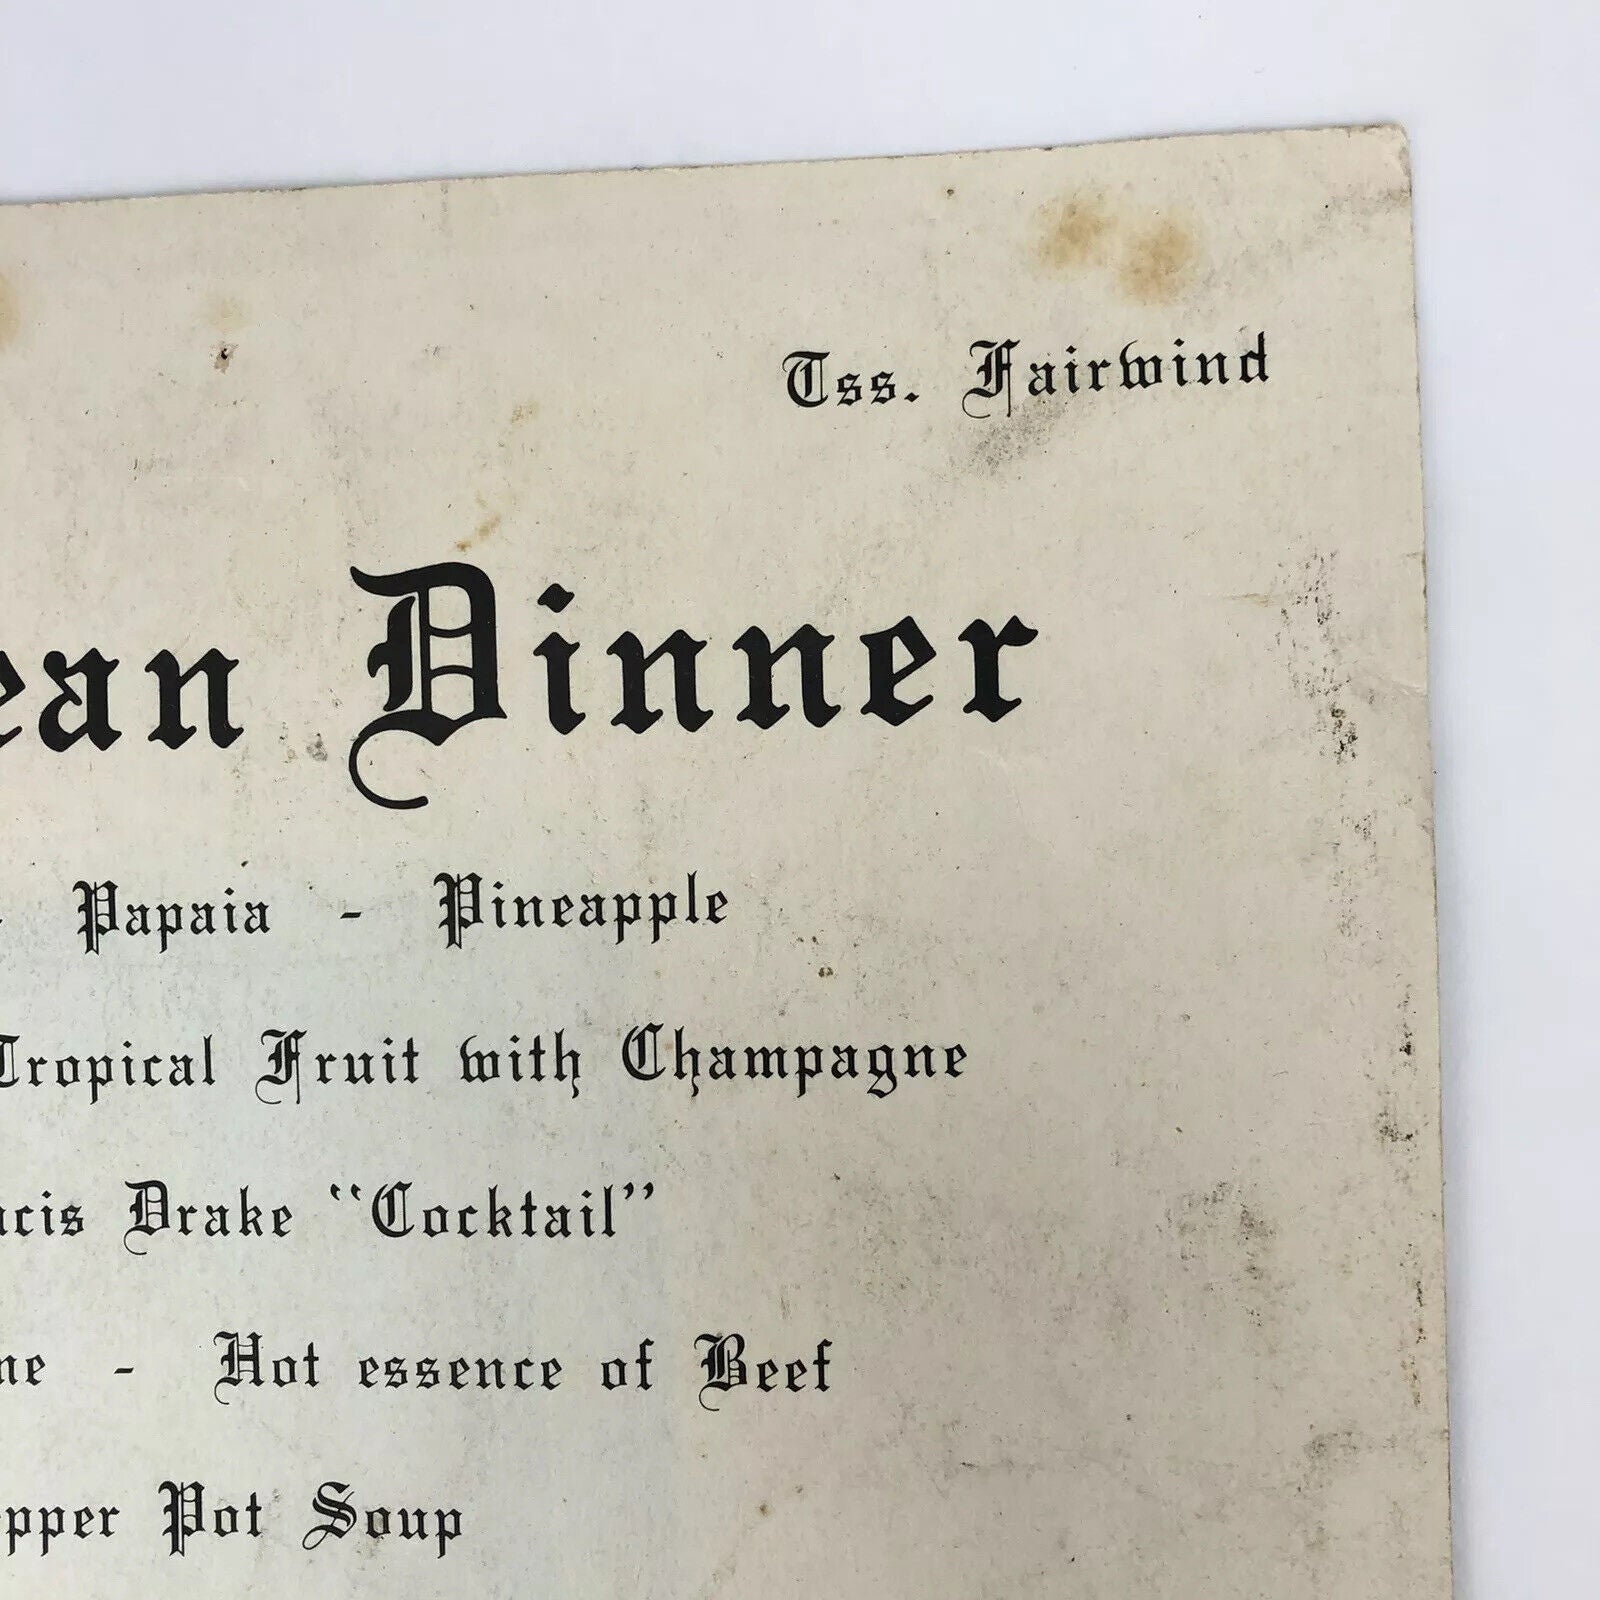 Tss. Fairwind
ean Dinner
- Papaia - Pineapple
Tropical Fruit with Champagne
ncis Drake "Cocktail"
ne - Hot essence of Beef
epper Pot Soup